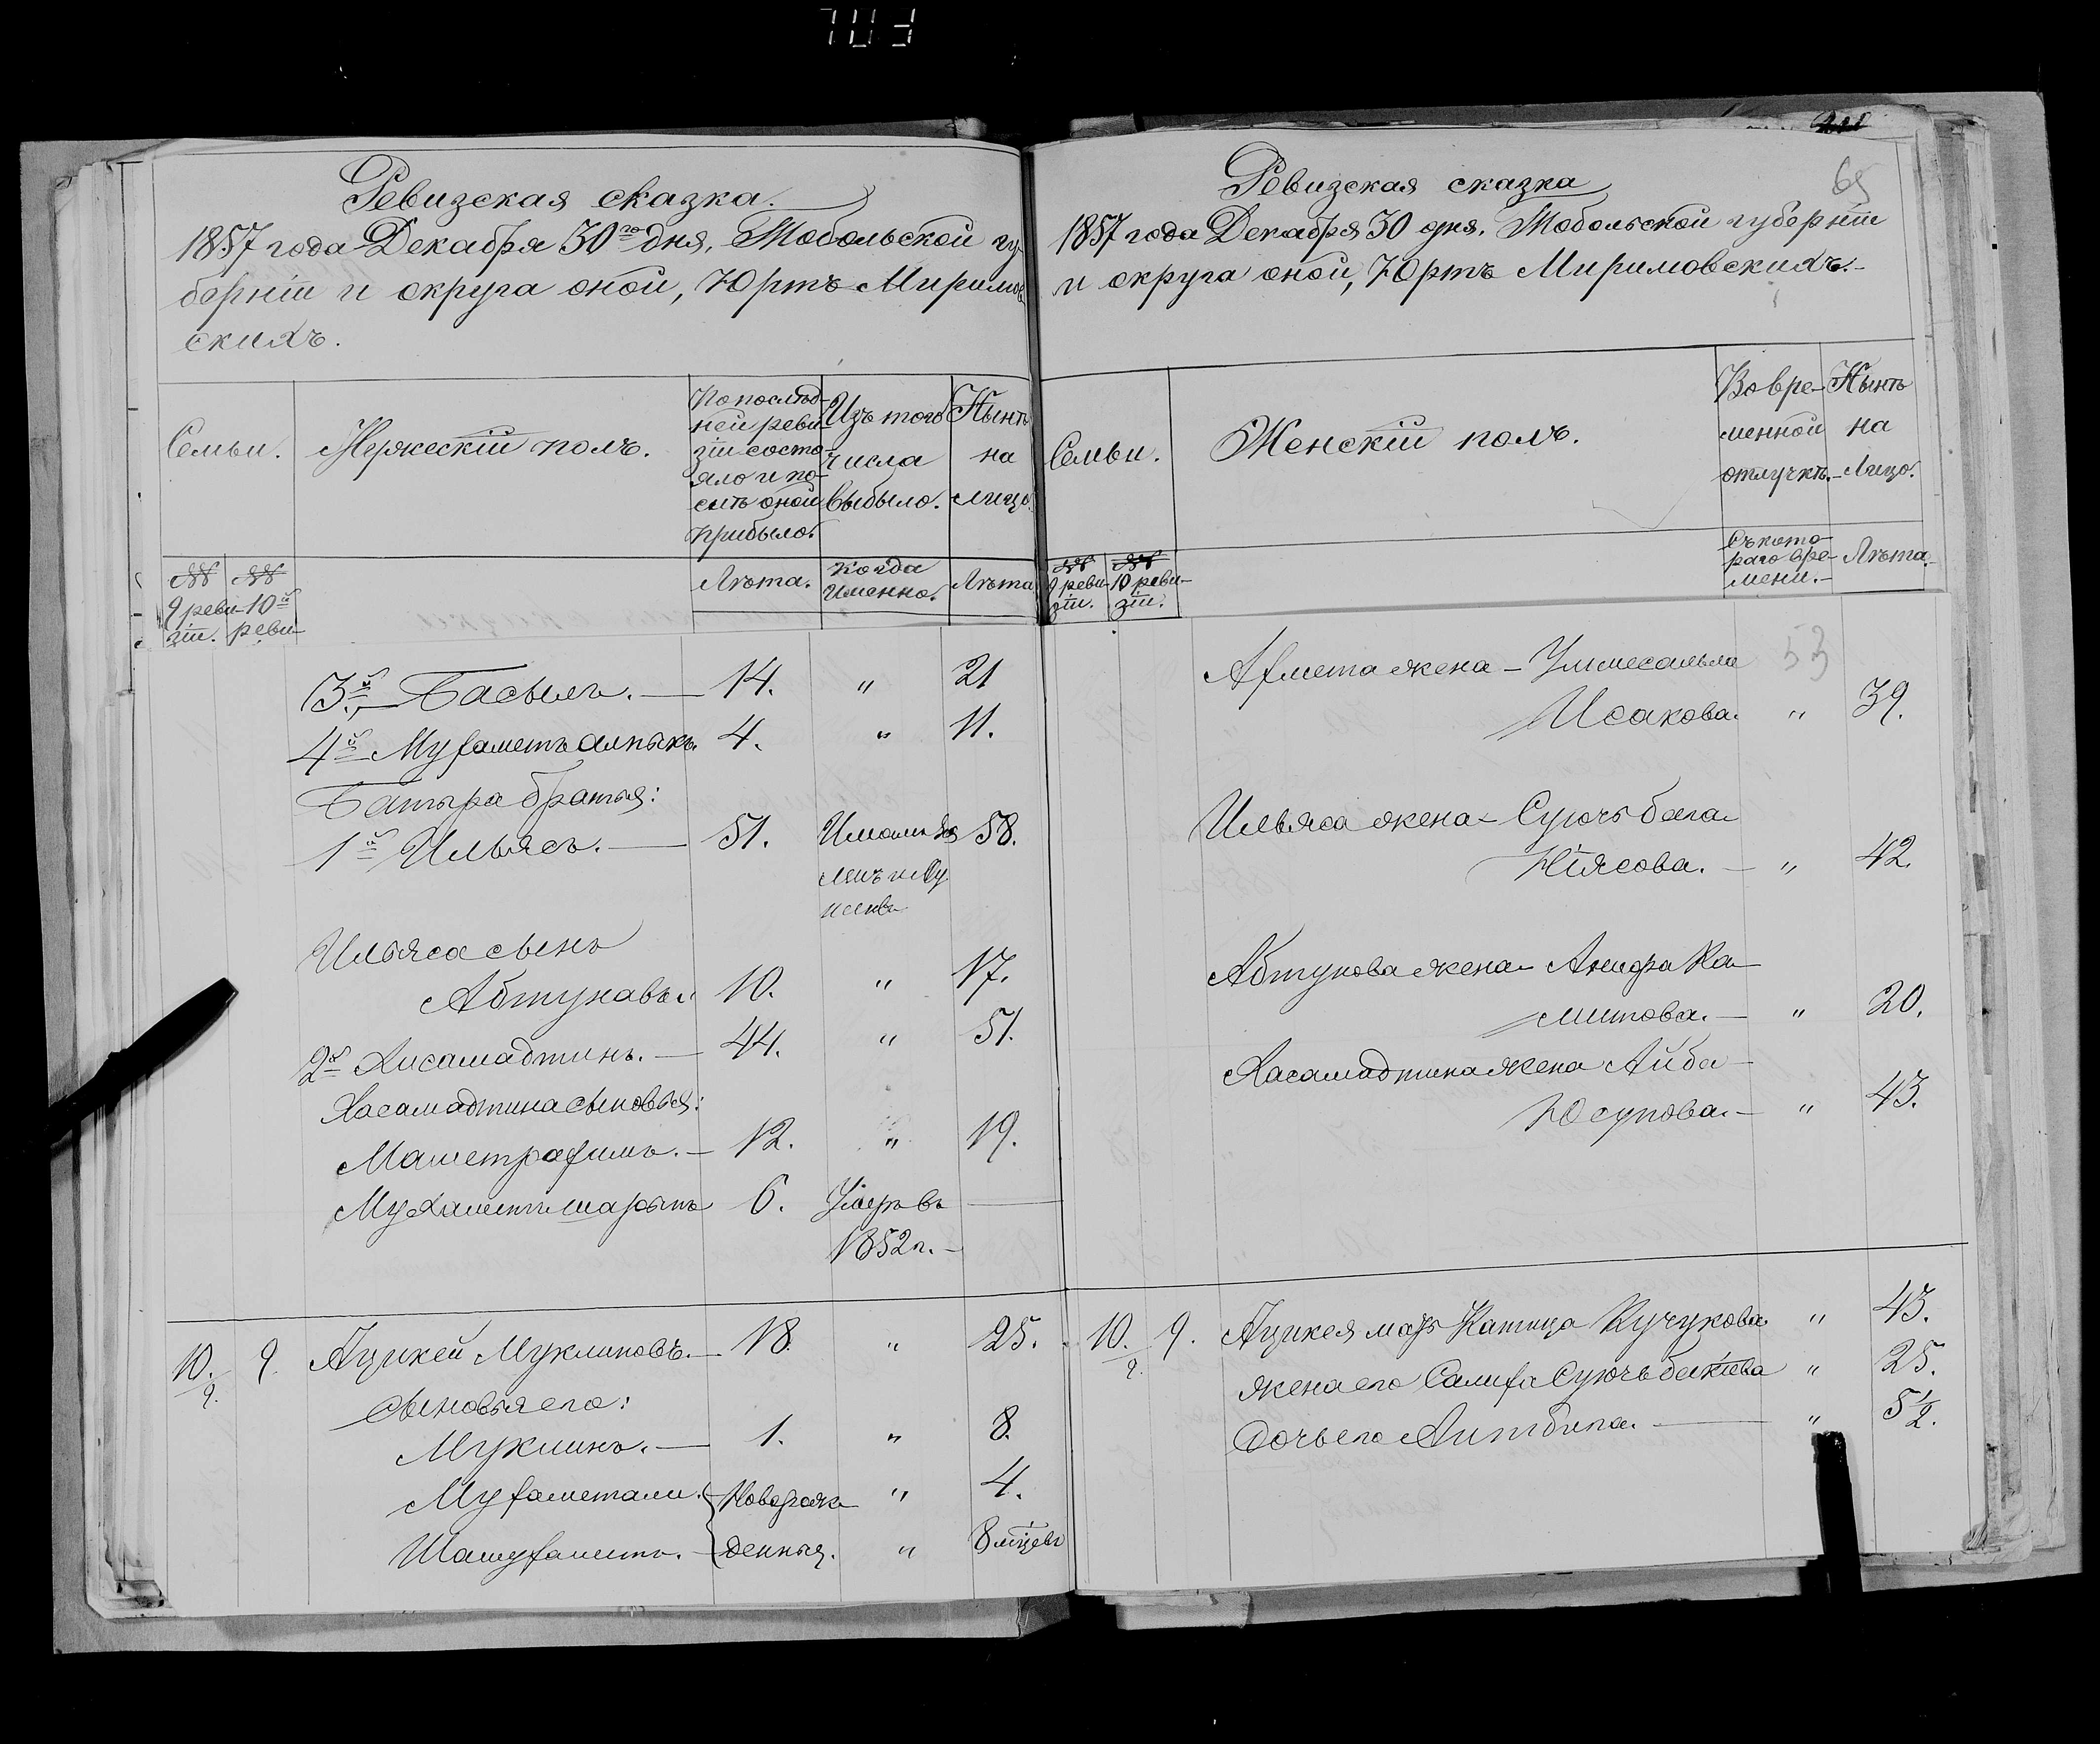 703
Ревизская сказка.
1857 года Декабря 30го дня, Тобольской гу
берніи и округа оной, Юртъ Миримов
скихъ.
Семьи.
Мужескій полъ.
По послѣд-
ней реви-
зіи состо-
яло и по-
слѣ оной
прибыло.
Изъ того
числа
выбыло.
Нынѣ
на
лицо.
№№
9 реви-
зіи.
№№
10й
реви-
Лѣта.
Когда
именно.
Лѣта
3й Басыль. — 14. " 21
4й Мухаметъ 4. " 11.
Батыра братья:
1й Ильясъ. — 51. 58.
Ильяса сынъ
Абтукавъ. 10. " 17.
2й Хисамадтинъ. — 44. " 51.
Хасамадтина сыновья:
Маметрахимъ. — 12. " 19.
Мухаметшарыпъ 6. Умеръ въ —
1852 г. —
10./9. 9. Ацикей Муклиновъ. — 18. " 25.
Сыновья его:
Муклинъ. — 1. " 8.
Мухаметали. Новорож- " 4.
Шамухаметъ. денныя. " 8 мѣцевъ
Ревизская сказка
65
1857 года Декабря 30 дня, Тобольской губерніи
и округа оной, Юртъ Миримовскихъ. —
Семьи.
Женскій полъ.
Во вре-
менной
отлучкѣ. —
Нынѣ
на
Лицо.
№№
9 реви-
зіи.
№№
10 реви-
зіи.
Съ кото-
раго вре-
мени. —
Лѣта. —
53
Ахмета жена —
Исакова. " 39.
Ильяса жена —
Ніясова. — " 42.
Абтукова жена — Ка-
митова. — " 20.
Хасамадтина жена Айба —
Юсупова. — " 43.
10./9. 9. Ацикея мать Катица Кучукова " 43.
жена его Салиха Суючьбакіева " 25.
Дочь его Аитбика. — " 5 1/2.